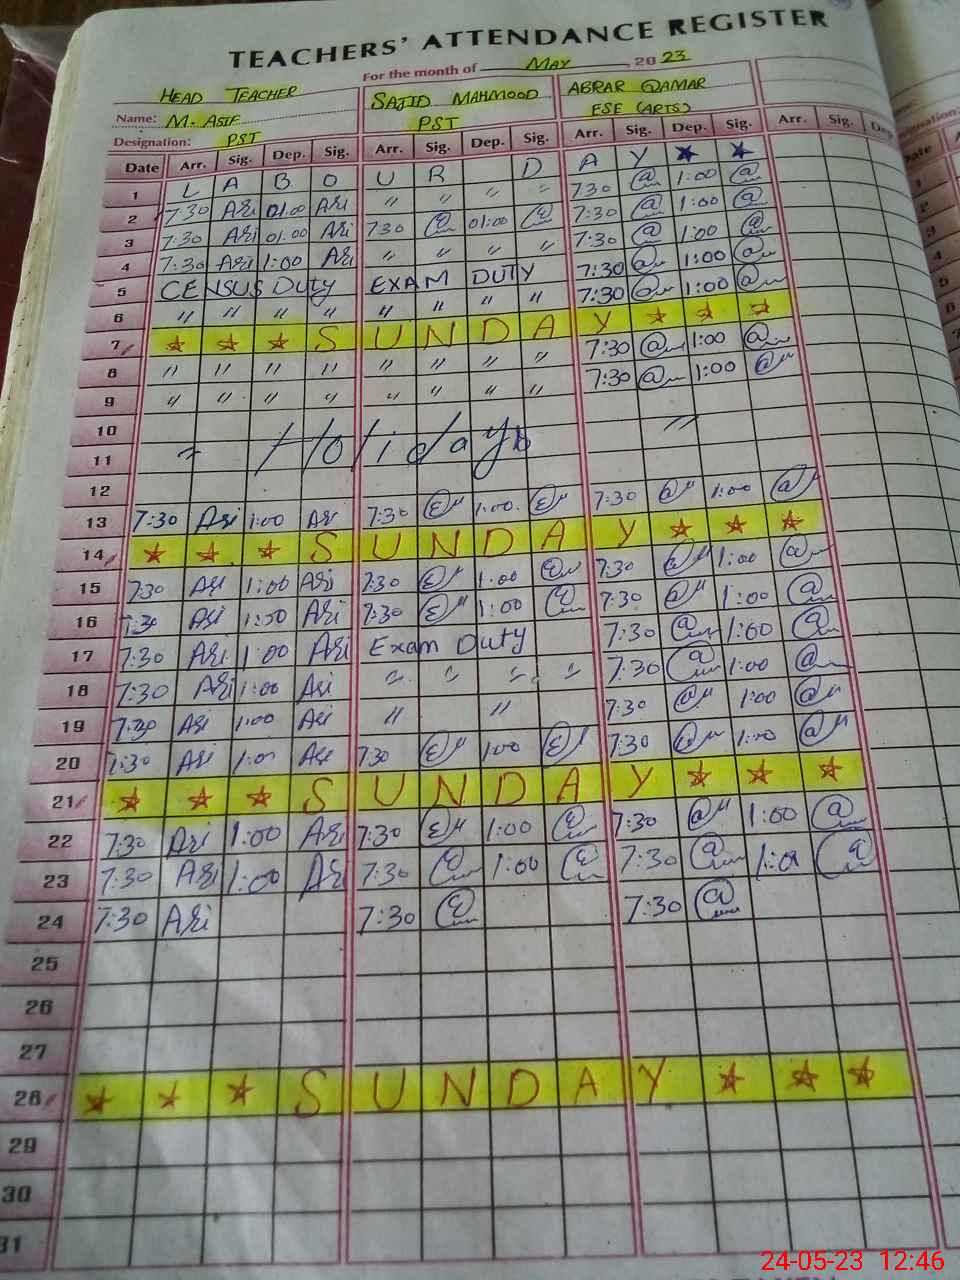 TEACHERS' ATTENDANCE REGISTER
For the month of MAY 2023
HEAD TEACHER SAJID MAHMOOD ABRAR QAMAR
Name: M. ASIF PST ESE (ARTS)
Designation: PST
Date Arr. Sig. Dep. Sig. Arr. Sig. Dep. Sig. Arr. Sig. Dep. Sig. Arr. Sig. Dep
1 L A B O U R D A Y ★ ★
2 7:30 Asi 01.00 Asi " " " " 7:30 1:00
3 7:30 Asi 01.00 Asi 7:30 01:00 7:30 1:00
4 7:30 Asi 1:00 Asi " " " " 7:30 1:00
5 CENSUS DUTY EXAM DUTY 7:30 1:00
6 " " " " " " " " 7:30 1:00
7 ☆ ☆ ☆ S U N D A Y ☆ ☆ ☆
8 " " " " " " " " 7:30 1:00
9 " " " " " " " " 7:30 1:00
10
11 " Holidays "
12
13 7:30 Asi 1:00 Asi 7:30 1:00 7:30 1:00
14 ☆ ☆ ☆ S U N D A Y ☆ ☆ ☆
15 7:30 Asi 1:00 Asi 7:30 1:00 7:30 1:00
16 7:30 Asi 1:00 Asi 7:30 1:00 7:30 1:00
17 7:30 Asi 1:00 Asi Exam Duty 7:30 1:00
18 7:30 Asi 1:00 Asi " " " " 7:30 1:00
19 7:30 Asi 1:00 Asi " " 7:30 1:00
20 7:30 Asi 1:00 Asi 7:30 1:00 7:30 1:00
21 ☆ ☆ ☆ S U N D A Y ☆ ☆ ☆
22 7:30 Asi 1:00 Asi 7:30 1:00 7:30 1:00
23 7:30 Asi 1:00 Asi 7:30 1:00 7:30 1:00
24 7:30 Asi 7:30 7:30
25
26
27
28 ☆ ☆ ☆ S U N D A Y ☆ ☆ ☆
29
30
31
24-05-23 12:46